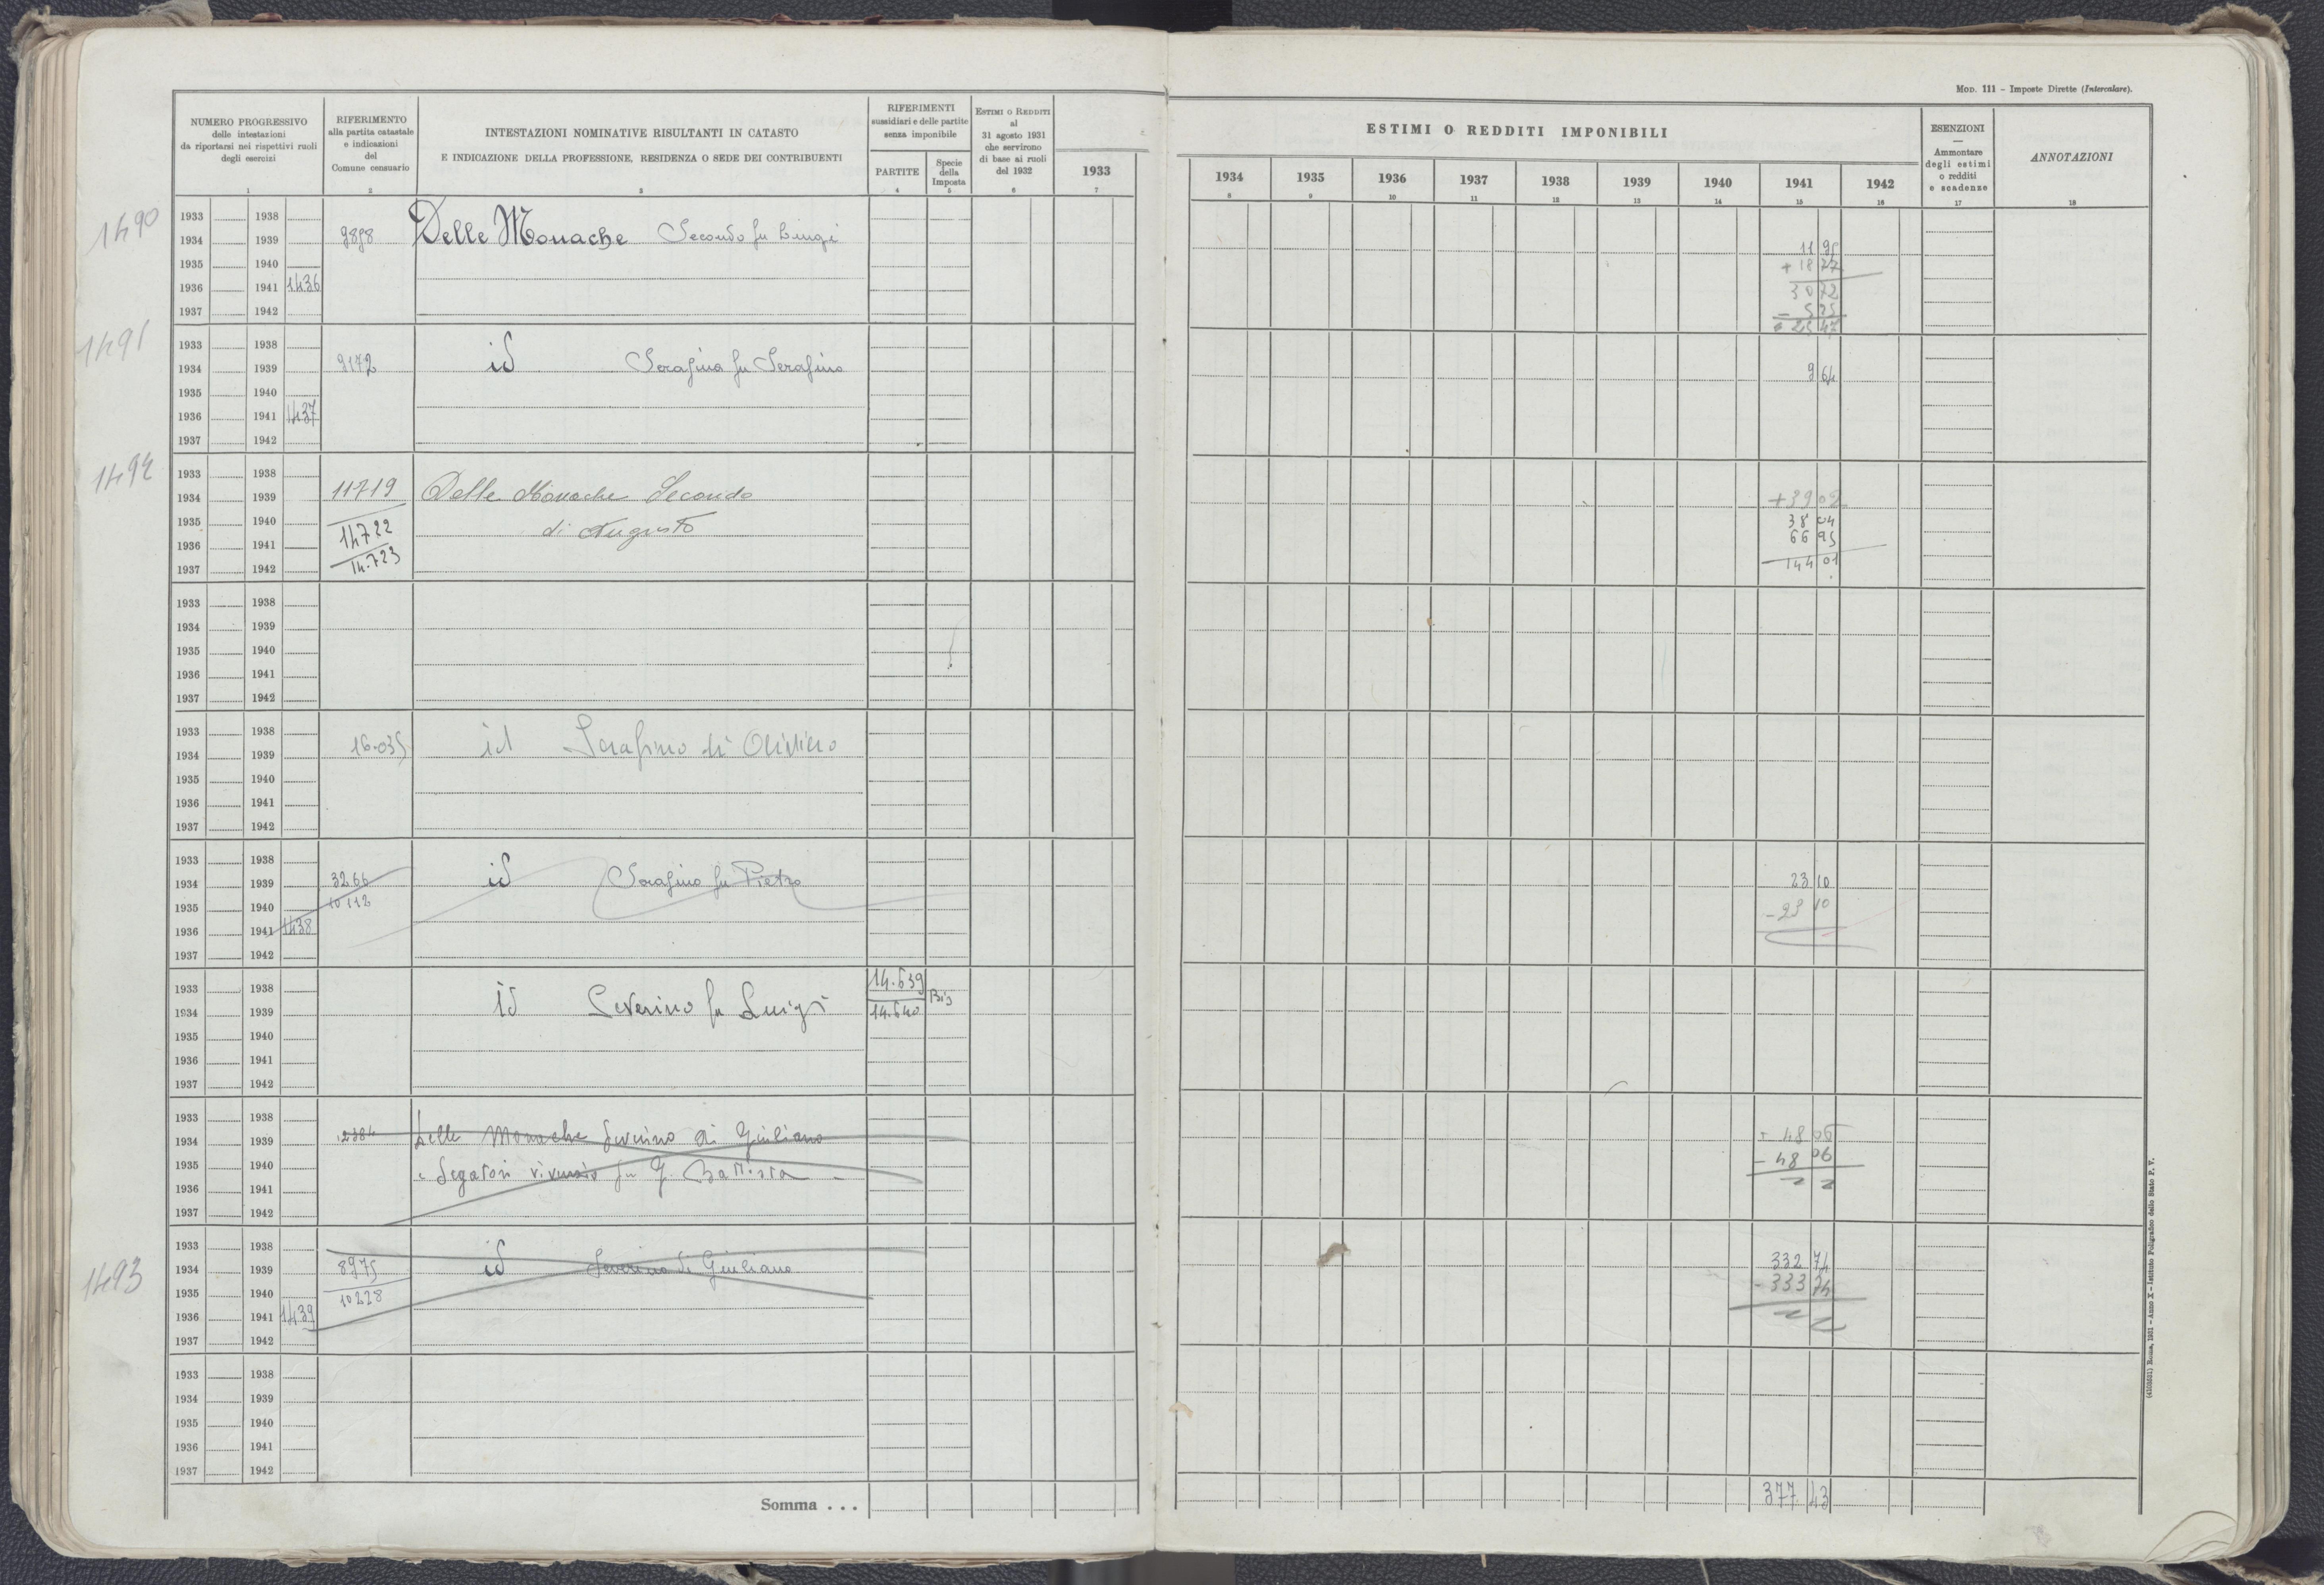 MOD. 111 - Imposte Dirette (Intercalare).
NUMERO PROGRESSIVO
delle intestazioni
da riportarsi nei rispettivi ruoli
degli esercizi
1
RIFERIMENTO
alla partita catastale
e indicazioni
del
Comune censuario
2
INTESTAZIONI NOMINATIVE RISULTANTI IN CATASTO
E INDICAZIONE DELLA PROFESSIONE, RESIDENZA O SEDE DEI CONTRIBUENTI
3
RIFERIMENTI
sussidiari e delle partite
senza imponibile
PARTITE
4
Specie
della
Imposta
5
ESTIMI O REDDITI
al
31 agosto 1931
che servirono
di base ai ruoli
del 1932
6
1933
7
ESTIMI O REDDITI IMPONIBILI
1934 1935 1936 1937 1938 1939 1940 1941 1942
8 9 10 11 12 13 14 15 16
ESENZIONI
—
Ammontare
degli estimi
o redditi
e scadenze
17
ANNOTAZIONI
18
1490
1933 1938
1934 1939 9898 Delle Monache Secondo fu Luigi 11 95
1935 1940 + 18 77
1936 1941 1436 30 72
1937 1942 - 5 25
25 47
1491
1933 1938
1934 1939 9172 id Serafina fu Serafino 9 64
1935 1940
1936 1941 1437
1937 1942
1492
1933 1938
1934 1939 11719 Delle Monache Secondo + 39 02
1935 1940 14722 di Augusto 38 04
1936 1941 66 95
1937 1942 14.723 144 01
1933 1938
1934 1939
1935 1940
1936 1941
1937 1942
1933 1938
1934 1939 16.035 id Serafino di Oliviero
1935 1940
1936 1941
1937 1942
1933 1938
1934 1939 3266 id Serafino fu Pietro 23 10
1935 1940 10112 - 23 10
1936 1941 1438
1937 1942
1933 1938 14.639
1934 1939 id Severino fu Luigi 14.640 Bis
1935 1940
1936 1941
1937 1942
1933 1938
1934 1939 2384 Delle Monache Severino di Giuliano + 48 06
1935 1940 e Segatori fu G. Battista - 48 06
1936 1941
1937 1942
1493
1933 1938
1934 1939 8975 id Severino di Giuliano 332 74
1935 1940 10228 - 333 74
1936 1941 1439
1937 1942
1933 1938
1934 1939
1935 1940
1936 1941
1937 1942
Somma . . . 377 43
(4103531) Roma, 1931 - Anno X - Istituto Poligrafico dello Stato P. V.